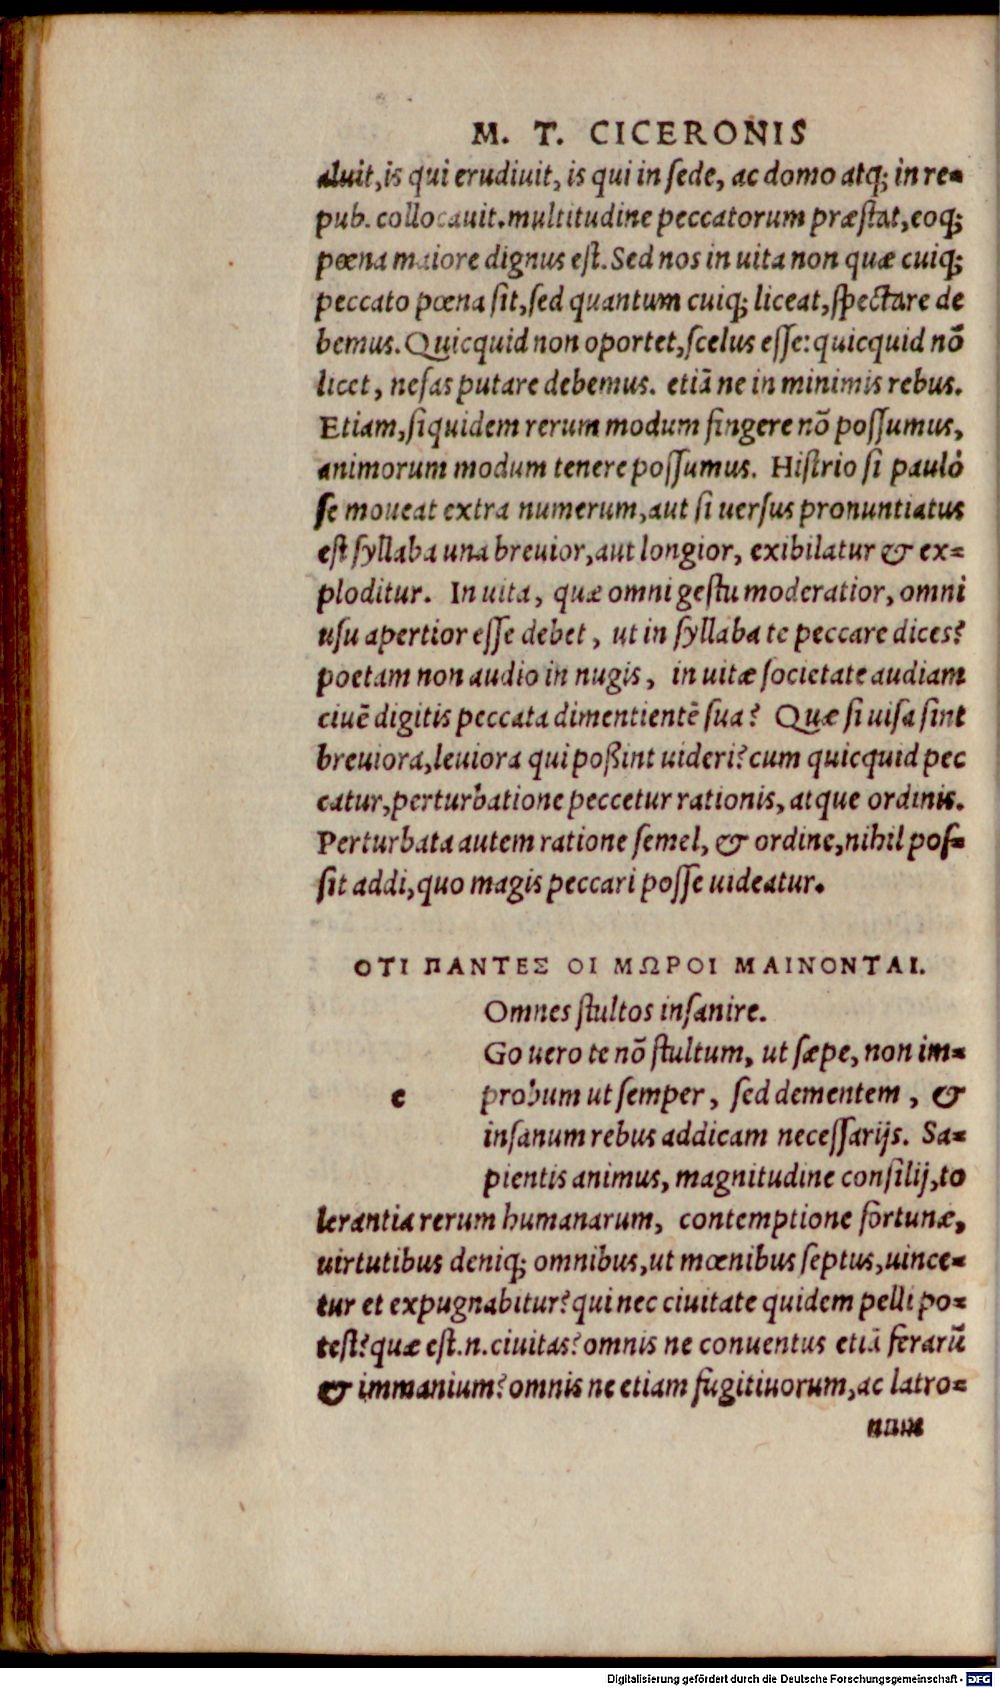 M. T. CICERONIS
aluit, is qui erudiuit, is qui in sede, ac domo atq; in re-
pub. collocauit. multitudine peccatorum præstat, eoq;
pœna maiore dignus est. Sed nos in uita non quæ cuiq;
peccato pœna sit, sed quantum cuiq; liceat, spectare de
bemus. Quicquid non oportet, scelus esse: quicquid nõ
licet, nefas putare debemus. etiã ne in minimis rebus.
Etiam, siquidem rerum modum fingere nõ possumus,
animorum modum tenere possumus. Histrio si paulò
se moueat extra numerum, aut si uersus pronuntiatus
est syllaba una breuior, aut longior, exibilatur & ex-
ploditur. In uita, quæ omni gestu moderatior, omni
usu apertior esse debet, ut in syllaba te peccare dices?
poetam non audio in nugis, in uitæ societate audiam
ciuẽ digitis peccata dimentientẽ sua? Quæ si uisa sint
breuiora, leuiora qui poßint uideri? cum quicquid pec
catur, perturbatione peccetur rationis, atque ordinis.
Perturbata autem ratione semel, & ordine, nihil pos-
sit addi, quo magis peccari posse uideatur.
ΟΤΙ ΠΑΝΤΕΣ ΟΙ ΜΩΡΟΙ ΜΑΙΝΟΝΤΑΙ.
Omnes stultos insanire.
Go uero te nõ stultum, ut sæpe, non im-
e probum ut semper, sed dementem, &
insanum rebus addicam necessarijs. Sa-
pientis animus, magnitudine consilij, to
lerantia rerum humanarum, contemptione fortunæ,
uirtutibus deniq; omnibus, ut mœnibus septus, uince-
tur et expugnabitur? qui nec ciuitate quidem pelli po-
test? quæ est.n.ciuitas? omnis ne conuentus etiã ferarũ
& immanium? omnis ne etiam fugitiuorum, ac latro-
num
Digitalisierung gefördert durch die Deutsche Forschungsgemeinschaft - DFG